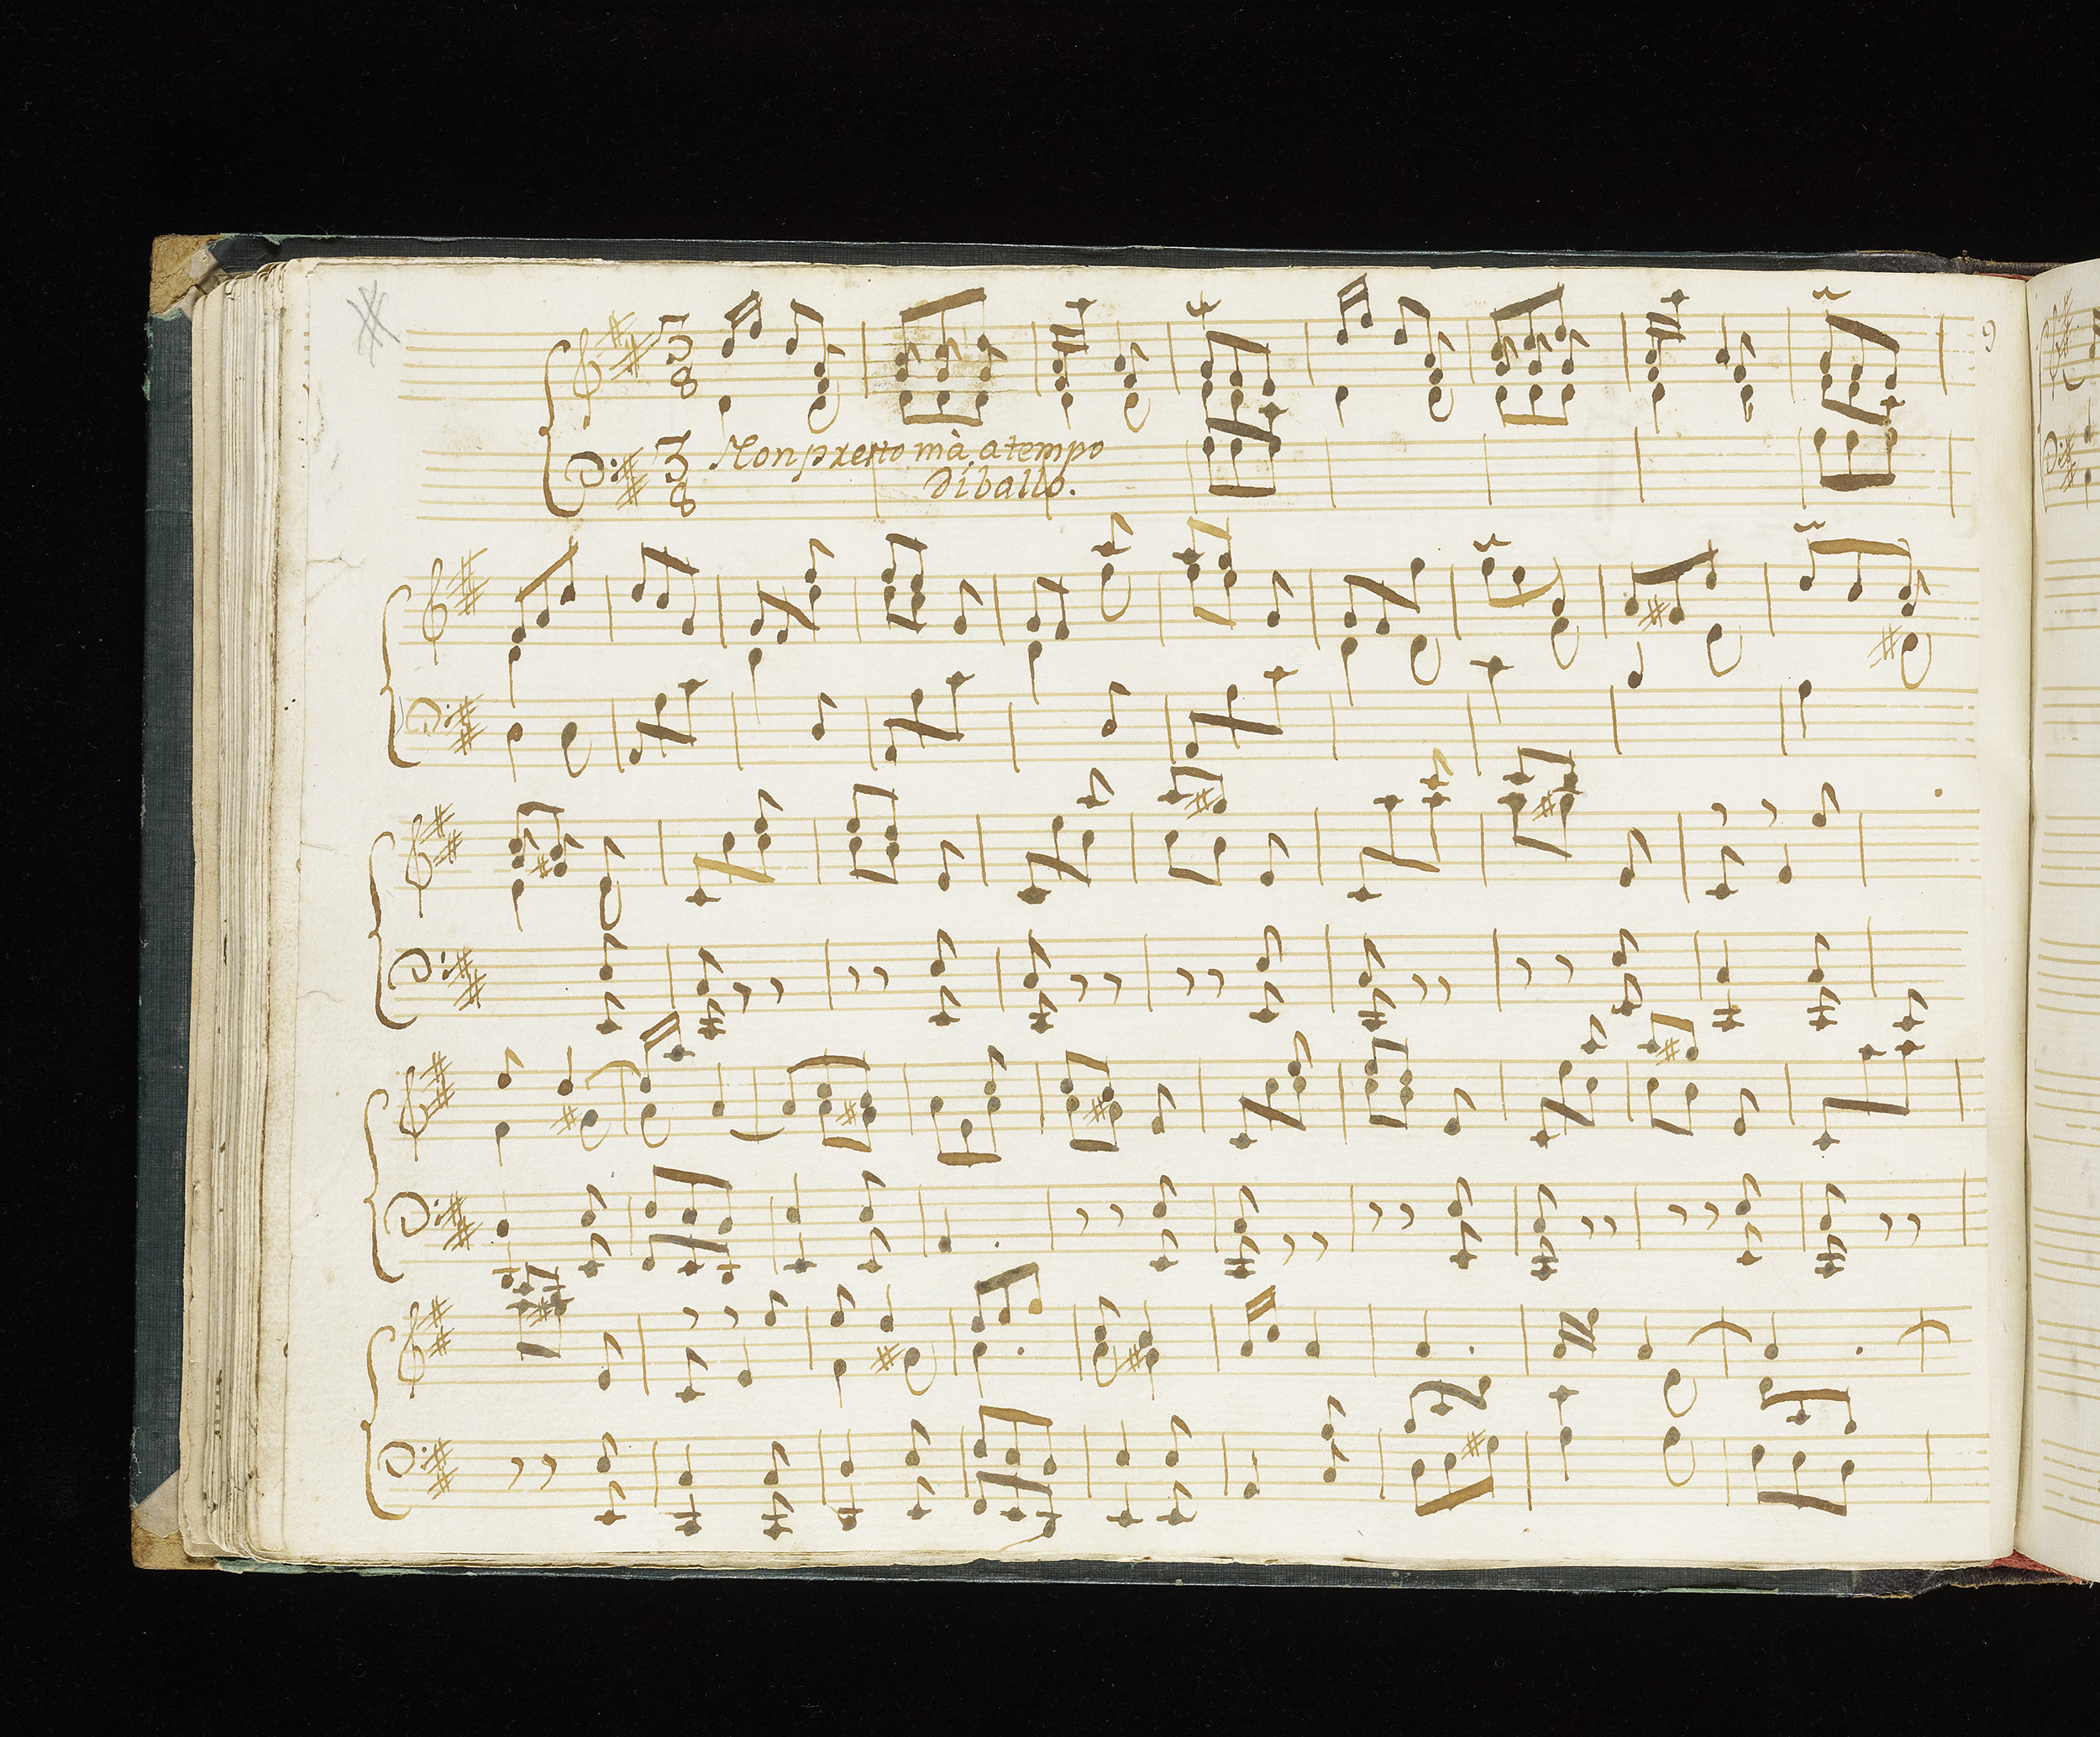 9
3
8
3
8
Non presto mà a tempo
di ballo.